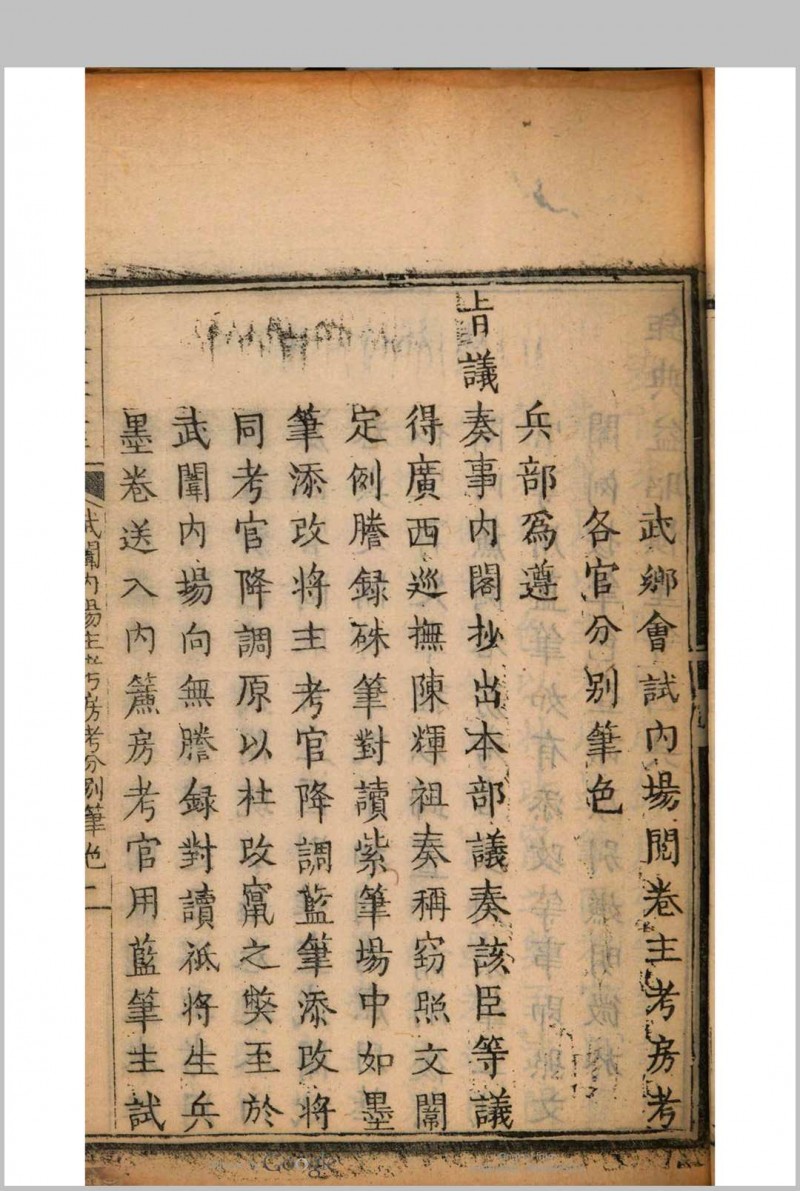 武鄉會試內場閱卷主考房考
各官分別筆色
兵部爲遵
旨議奏事內閣抄出本部議奏該臣等議
得廣西巡撫陳輝祖奏稱窃照文闈
定例謄録硃筆對讀紫筆場中如墨
筆添改將主考官降調藍筆添改將
同考官降調原以杜改竄之獘至於
武闈內場向無謄録對讀祗將生兵
墨卷送入內簾房考官用藍筆主試
武闈內場主考房考分別筆色 二